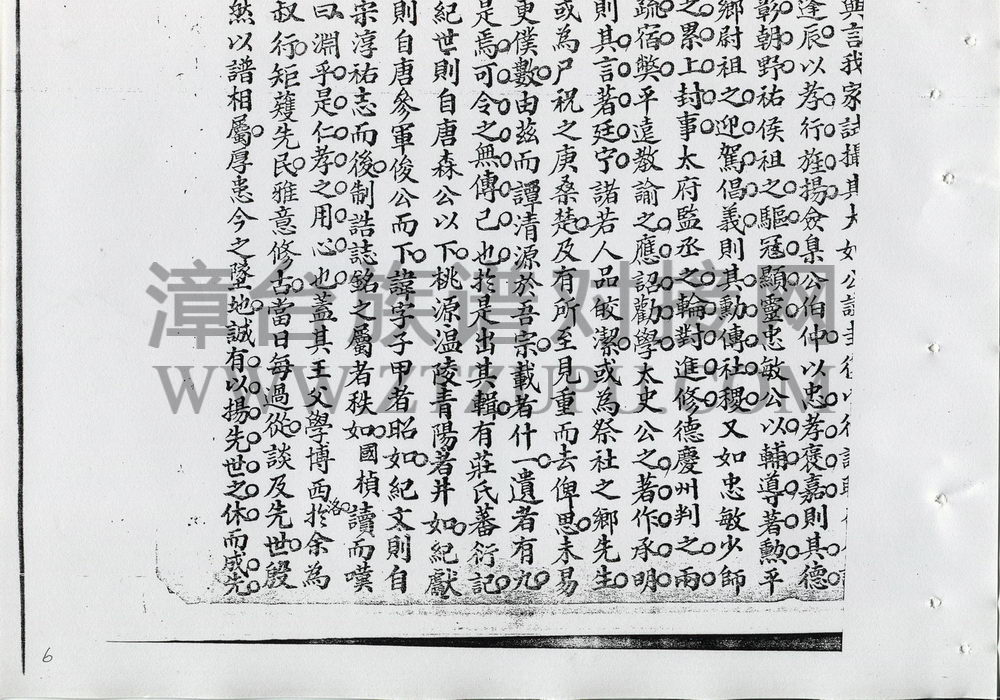 與言我家試摄其大如公
逢辰以孝行旌揚僉臬公伯仲以忠孝褒嘉則其德
彰朝野祐侯祖之驅冦顯靈忠敏公以輔導著勲平
鄉尉祖之迎駕倡義則其勳傳社稷又如忠敏少師
之累上封事太府監丞之輪對進修德慶州判之兩
疏宿獘平遠教諭之應詔勸學太史公之著作承明
則其言著廷宁諸若人品皎潔或為祭社之鄉先生
或為尸祝之庚桑楚及有所至見重而去俾思未易
更僕數由茲而譚清源於吾宗載者什一遺者有九
是焉可令之無傳已也扵是出其輯有莊氏蕃衍記
紀世則自唐森公以下桃源温陵青陽者井如紀獻
則自唐參軍俊公而下諱字子甲者昭如紀文則自
宗淳祐志而後制誥誌銘之屬者秩如國楨讀而嘆
曰淵乎是仁孝之用心也蓋其王父學博西洛扵余為
叔行矩蠖先民雅意修古當日每過從談及先世殷
然以譜相屬厚恚今之墜地誠有以揚先世之休而成先
漳台族谱对接网
WWW.ZTZUPU.COM
6